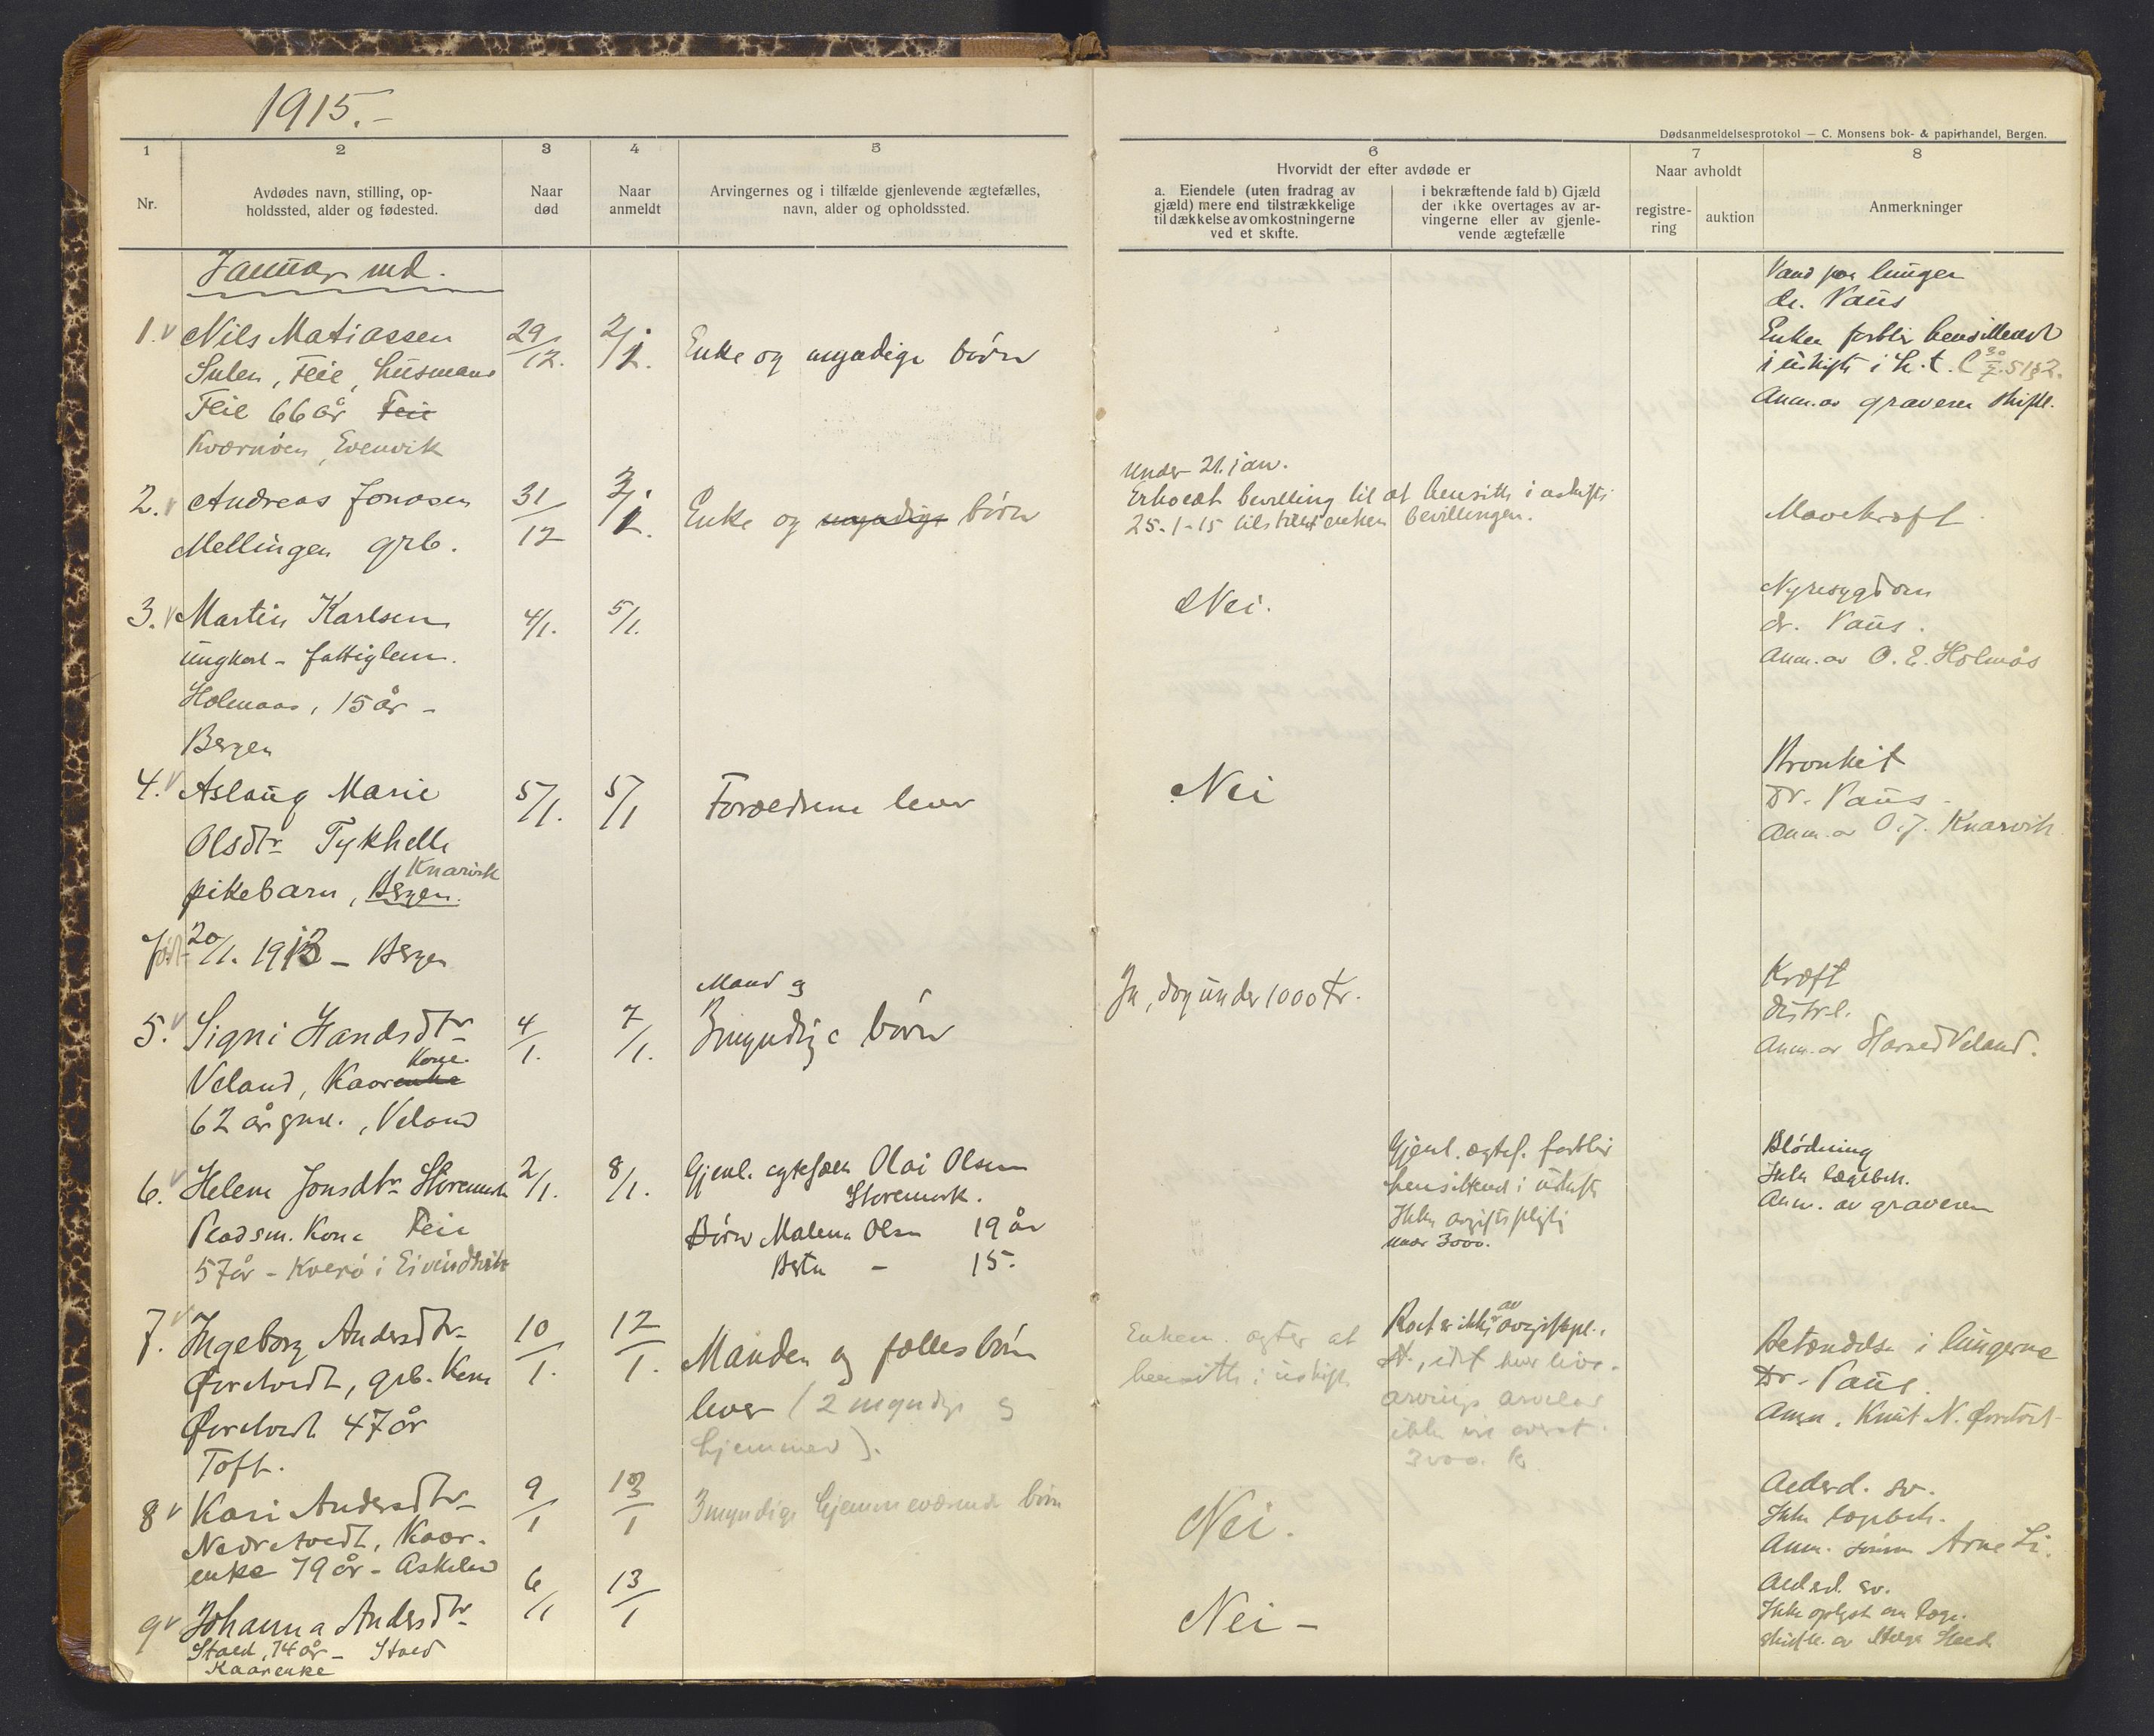 1915.-
Dødsanmeldelsesprotokol — C. Monsens bok- & papirhandel, Bergen.
1
2
3
4
5
6
7
8
Nr.
Avdødes navn, stilling, op-
holdssted, alder og fødested.
Naar
død
Naar
anmeldt
Arvingernes og i tilfælde gjenlevende ægtefælles,
navn, alder og opholdssted.
Hvorvidt der efter avdøde er
a. Eiendele (uten fradrag av
gjæld) mere end tilstrækkelige
til dækkelse av omkostningerne
ved et skifte.
i bekræftende fald b) Gjæld
der ikke overtages av ar-
vingerne eller av gjenle-
vende ægtefælle
Naar avholdt
registre-
ring
auktion
Anmerkninger
Januar md.
1. Nils Matiassen
Sulen, Feie, husmand
Feie 66 år Feie
Evenvik
29/12.
2/1.
Enke og myndige børn
Vand paa lunger
dr. Paus
Enken forblir hensittende
i uskifte i h. t.
Anm. av graveren skiftl.
2. Andreas Jonasen
Mellingen grb.
31/12
2/1.
Enke og myndige børn
Under 21. jan.
Erholdt bevilling til at hensitte i uskifte
25-1-15 tilstillet enken bevillingen.
Mavekræft
3. Martin Karlsen
ungkarl - fattiglem.
Holmaas, 15 år -
Bergen
4/1.
5/1.
Nei.
Nyresygdom
dr. Paus.
Anm. av O. E. Holmås
4. Aslaug Marie
Olsdtr Tykhelle
Knarvik
pikebarn, Bergen.
født 20/1. 1913 - Bergen
5/1.
5/1
Forældrene lever
Nei
Bronkit
Dr. Paus.
Anm. av O. J. Knarvik
5. Signi Handsdtr
Kone.
Veland, Kaarenke
62 år gml., Veland
4/1.
7/1.
Mand og
3 myndige børn
Ja, dog under 1000 kr.
Kræft
distr.l.
Anm. av Veland.
6. Helene Jonsdtr Storemark
Pladsm. Kone Feie
57 år - Kverø i Eivindvik
2/1.
8/1.
Gjenl. egtefælle Olai Olsen
Storemark.
Børn Malena Olsen 19 år
Berta - 15.
Gjenl. ægtef. forblir
hensittende i uskifte
Ikke avgiftspligti
under 3000.
Blødning
Ikke lægebeh.
Anm. av graveren
7. Ingeborg Andersdtr
Øvretvedt, grb. Kone
Øvretvedt 47 år
Toft.
10/1.
12/1.
Manden og fælles børn
lever (2 myndige og
hjemmev).
Enkem. agter at
hensitte i uskifte
av
Boet er ikke avgiftspl.
arvings arvelod
3000. kr
Betændelse i lungerne
Dr. Paus.
Anm. Knut N. Øvretvet
8 Kari Andersdtr
Nedretvedt, Kaar-
enke 79 år - Askeland
9/1
13/1
3 myndige hjemmeværende børn
Nei.
Alderd. sv.
Ikke lægebeh.
Anm. sønnen Arne Li.
9 Johanna Andersdtr
Staed, 74 år - Staed
Kaarenke
6/1
13/1
Nei -
Alderd. sv.
Ikke oplyst om læge.